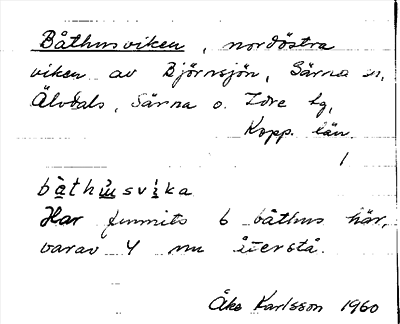 Båthusviken, nordöstra
viken av Björnsjön, Särna sn,
Älvdals, Särna o. Idre tg,
Kopp. län.
1
båthusvika
Har funnits 6 båthus här,
varav 4 nu återstå.
Åke Karlsson 1960